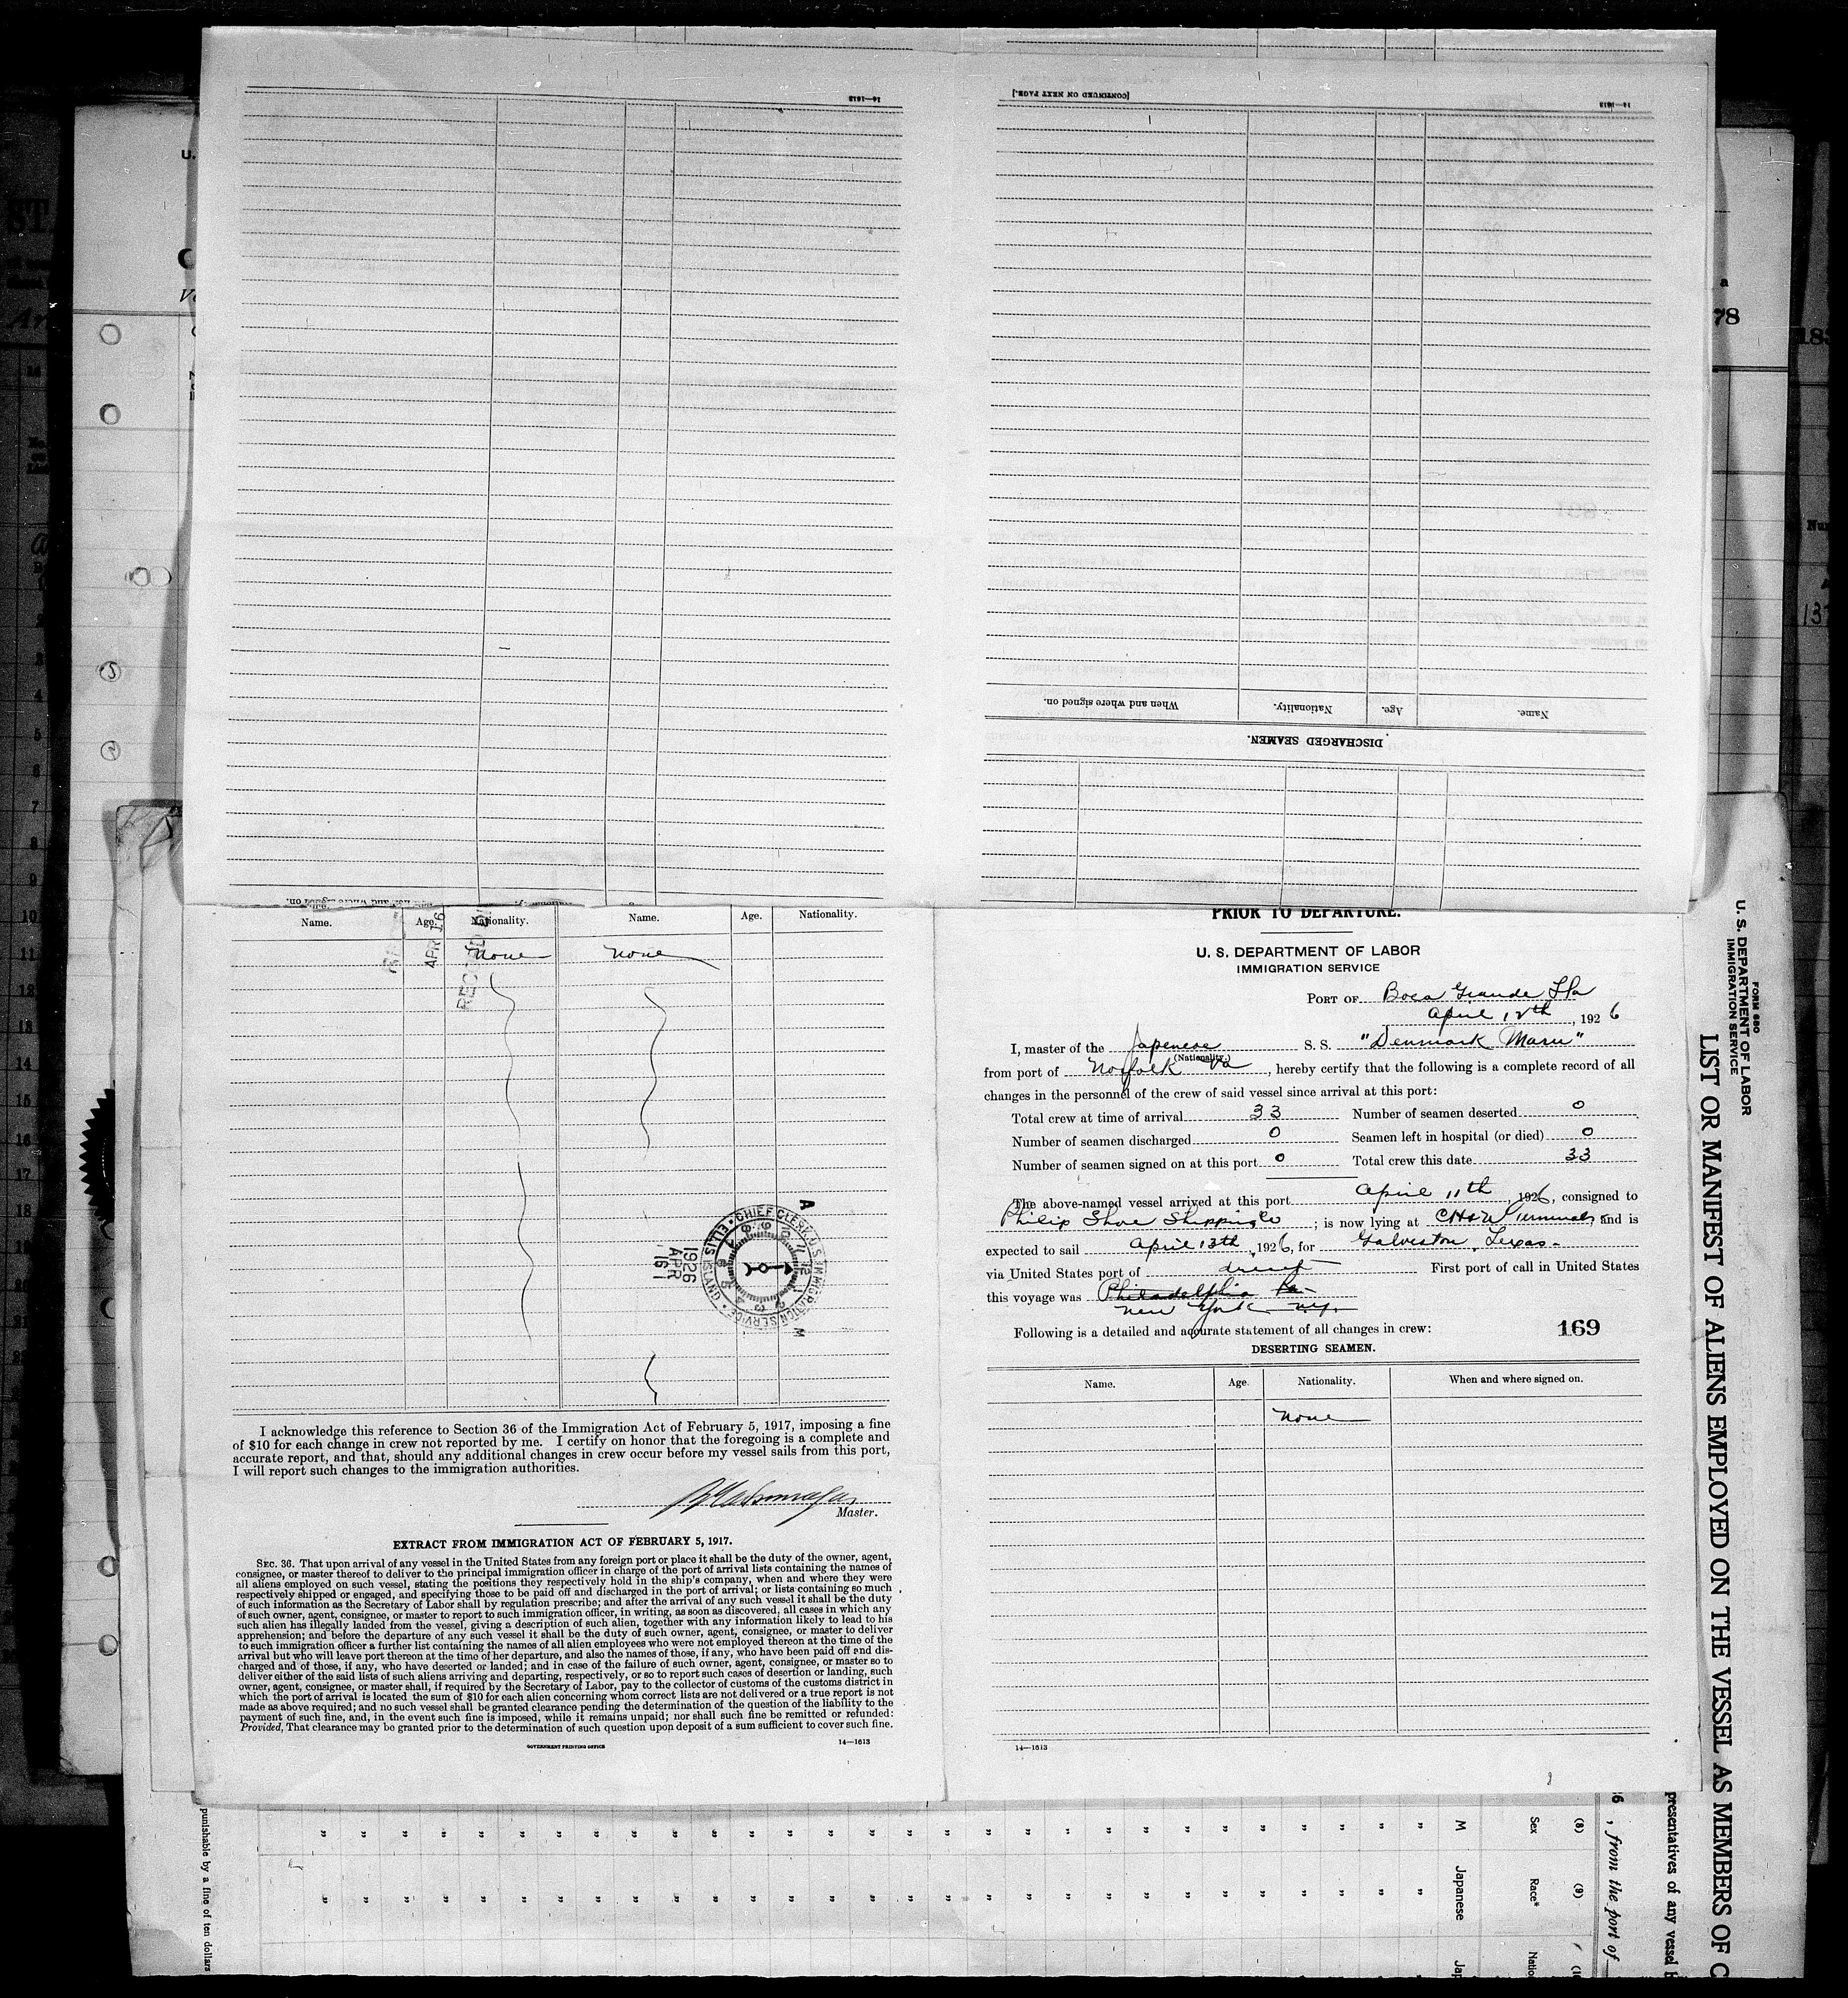 14—1613
[CONTINUED ON NEXT PAGE.]
14—1613
When and where signed on.
Nationality.
Age.
Name.
DISCHARGED SEAMEN.
Name.
Age.
Nationality.
Name.
Age.
Nationality.
None
None
REC'D
APR 16
CHIEF CLERK U.S. IMMIGRATION SERVICE • ELLIS ISLAND •
A
M
1926
APR
16
I acknowledge this reference to Section 36 of the Immigration Act of February 5, 1917, imposing a fine
of $10 for each change in crew not reported by me. I certify on honor that the foregoing is a complete and
accurate report, and that, should any additional changes in crew occur before my vessel sails from this port,
I will report such changes to the immigration authorities.
Master.
EXTRACT FROM IMMIGRATION ACT OF FEBRUARY 5, 1917.
SEC. 36. That upon arrival of any vessel in the United States from any foreign port or place it shall be the duty of the owner, agent,
consignee, or master thereof to deliver to the principal immigration officer in charge of the port of arrival lists containing the names of
all aliens employed on such vessel, stating the positions they respectively hold in the ship's company, when and where they were
respectively shipped or engaged, and specifying those to be paid off and discharged in the port of arrival; or lists containing so much
of such information as the Secretary of Labor shall by regulation prescribe; and after the arrival of any such vessel it shall be the duty
of such owner, agent, consignee, or master to report to such immigration officer, in writing, as soon as discovered, all cases in which any
such alien has illegally landed from the vessel, giving a description of such alien, together with any information likely to lead to his
apprehension; and before the departure of any such vessel it shall be the duty of such owner, agent, consignee, or master to deliver
to such immigration officer a further list containing the names of all alien employees who were not employed thereon at the time of the
arrival but who will leave port thereon at the time of her departure, and also the names of those, if any, who have been paid off and dis-
charged and of those, if any, who have deserted or landed; and in case of the failure of such owner, agent, consignee, or master so to
deliver either of the said lists of such aliens arriving and departing, respectively, or so to report such cases of desertion or landing, such
owner, agent, consignee, or master shall, if required by the Secretary of Labor, pay to the collector of customs of the customs district in
which the port of arrival is located the sum of $10 for each alien concerning whom correct lists are not delivered or a true report is not
made as above required; and no such vessel shall be granted clearance pending the determination of the question of the liability to the
payment of such fine, and, in the event such fine is imposed, while it remains unpaid; nor shall such fine be remitted or refunded:
Provided, That clearance may be granted prior to the determination of such question upon deposit of a sum sufficient to cover such fine.
GOVERNMENT PRINTING OFFICE
14—1613
PRIOR TO DEPARTURE.
U. S. DEPARTMENT OF LABOR
IMMIGRATION SERVICE
PORT OF Boca Grande Fla
April 12th, 1926
I, master of the Japenese S. S. "Denmark Maru"
(Nationality.)
from port of Norfolk Va, hereby certify that the following is a complete record of all
changes in the personnel of the crew of said vessel since arrival at this port:
Total crew at time of arrival 33 Number of seamen deserted 0
Number of seamen discharged 0 Seamen left in hospital (or died) 0
Number of seamen signed on at this port 0 Total crew this date 33
The above-named vessel arrived at this port April 11th, 1926, consigned to
Philip Shore Shipping Co; is now lying at CH&N Terminals and is
expected to sail April 13th, 1926, for Galveston, Texas-
via United States port of direct First port of call in United States
this voyage was Philadelphia Pa-
New York N.Y.
Following is a detailed and accurate statement of all changes in crew:
169
DESERTING SEAMEN.
Name.
Age.
Nationality.
When and where signed on.
None
14—1613
FORM 680
U. S. DEPARTMENT OF LABOR
IMMIGRATION SERVICE
LIST OR MANIFEST OF ALIENS EMPLOYED ON THE VESSEL AS MEMBERS OF C
presentatives of any vessel
, from the port of
(8)
(9)
Sex
Race*
M
Japanese
punishable by a fine of ten dollars
78
4
5
6
7
8
9
10
11
12
13
14
15
16
17
18